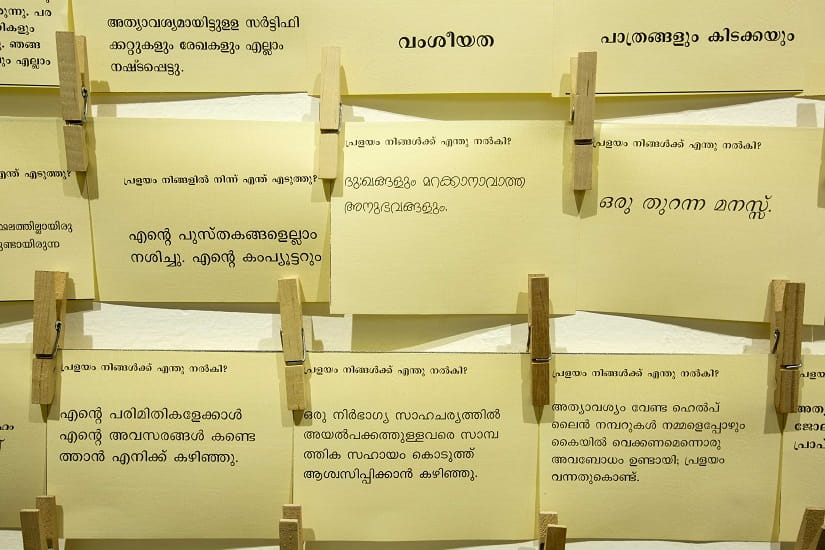 അത്യാവശ്യമായിട്ടുളള സർട്ടിഫി
ക്കറ്റുകളും രേഖകളും എല്ലാം
നഷ്ടപ്പെട്ടു.
വംശീയത
പാത്രങ്ങളും കിടക്കയും
എന്ത് എടുത്തു?
പ്രളയം നിങ്ങളിൽ നിന്ന് എന്ത് എടുത്തു?
എന്റെ പുസ്തകങ്ങളെല്ലാം
നശിച്ചു. എന്റെ കംപ്യൂട്ടറും
പ്രളയം നിങ്ങൾക്ക് എന്തു നൽകി?
ദുഃഖങ്ങളും മറക്കാനാവാത്ത
അനുഭവങ്ങളും.
പ്രളയം നിങ്ങൾക്ക് എന്തു നൽകി?
ഒരു തുറന്ന മനസ്സ്.
പ്രളയം നിങ്ങൾക്ക് എന്തു നൽകി?
എന്റെ പരിമിതികളേക്കാൾ
എന്റെ അവസരങ്ങൾ കണ്ടെ
ത്താൻ എനിക്ക് കഴിഞ്ഞു.
പ്രളയം നിങ്ങൾക്ക് എന്തു നൽകി?
ഒരു നിർഭാഗ്യ സാഹചര്യത്തിൽ
അയൽപക്കത്തുള്ളവരെ സാമ്പ
ത്തിക സഹായം കൊടുത്ത്
ആശ്വസിപ്പിക്കാൻ കഴിഞ്ഞു.
പ്രളയം നിങ്ങൾക്ക് എന്തു നൽകി?
അത്യാവശ്യം വേണ്ട ഹെൽപ്
ലൈൻ നമ്പറുകൾ നമ്മളെപ്പോഴും
കൈയിൽ വെക്കണമെന്നൊരു
അവബോധം ഉണ്ടായി; പ്രളയം
വന്നതുകൊണ്ട്.